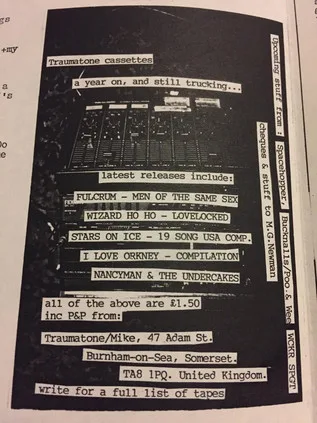 gs
+my
a
's
Do
e
Traumatone cassettes
a year on, and still trucking...
latest releases include:
FULCRUM - MEN OF THE SAME SEX
WIZARD HO HO - LOVELOCKED
STARS ON ICE - 19 SONG USA COMP.
I LOVE ORKNEY - COMPILATION
NANCYMAN & THE UNDERCAKES
all of the above are £1.50
inc P&P from:
Traumatone/Mike, 47 Adam St.
Burnham-on-Sea, Somerset.
TA8 1PQ. United Kingdom.
write for a full list of tapes
Upcoming stuff from: Spacehopper, Bucknalls/Poo & Wee WCKR SPGT
cheques & stuff to M.G.Newman